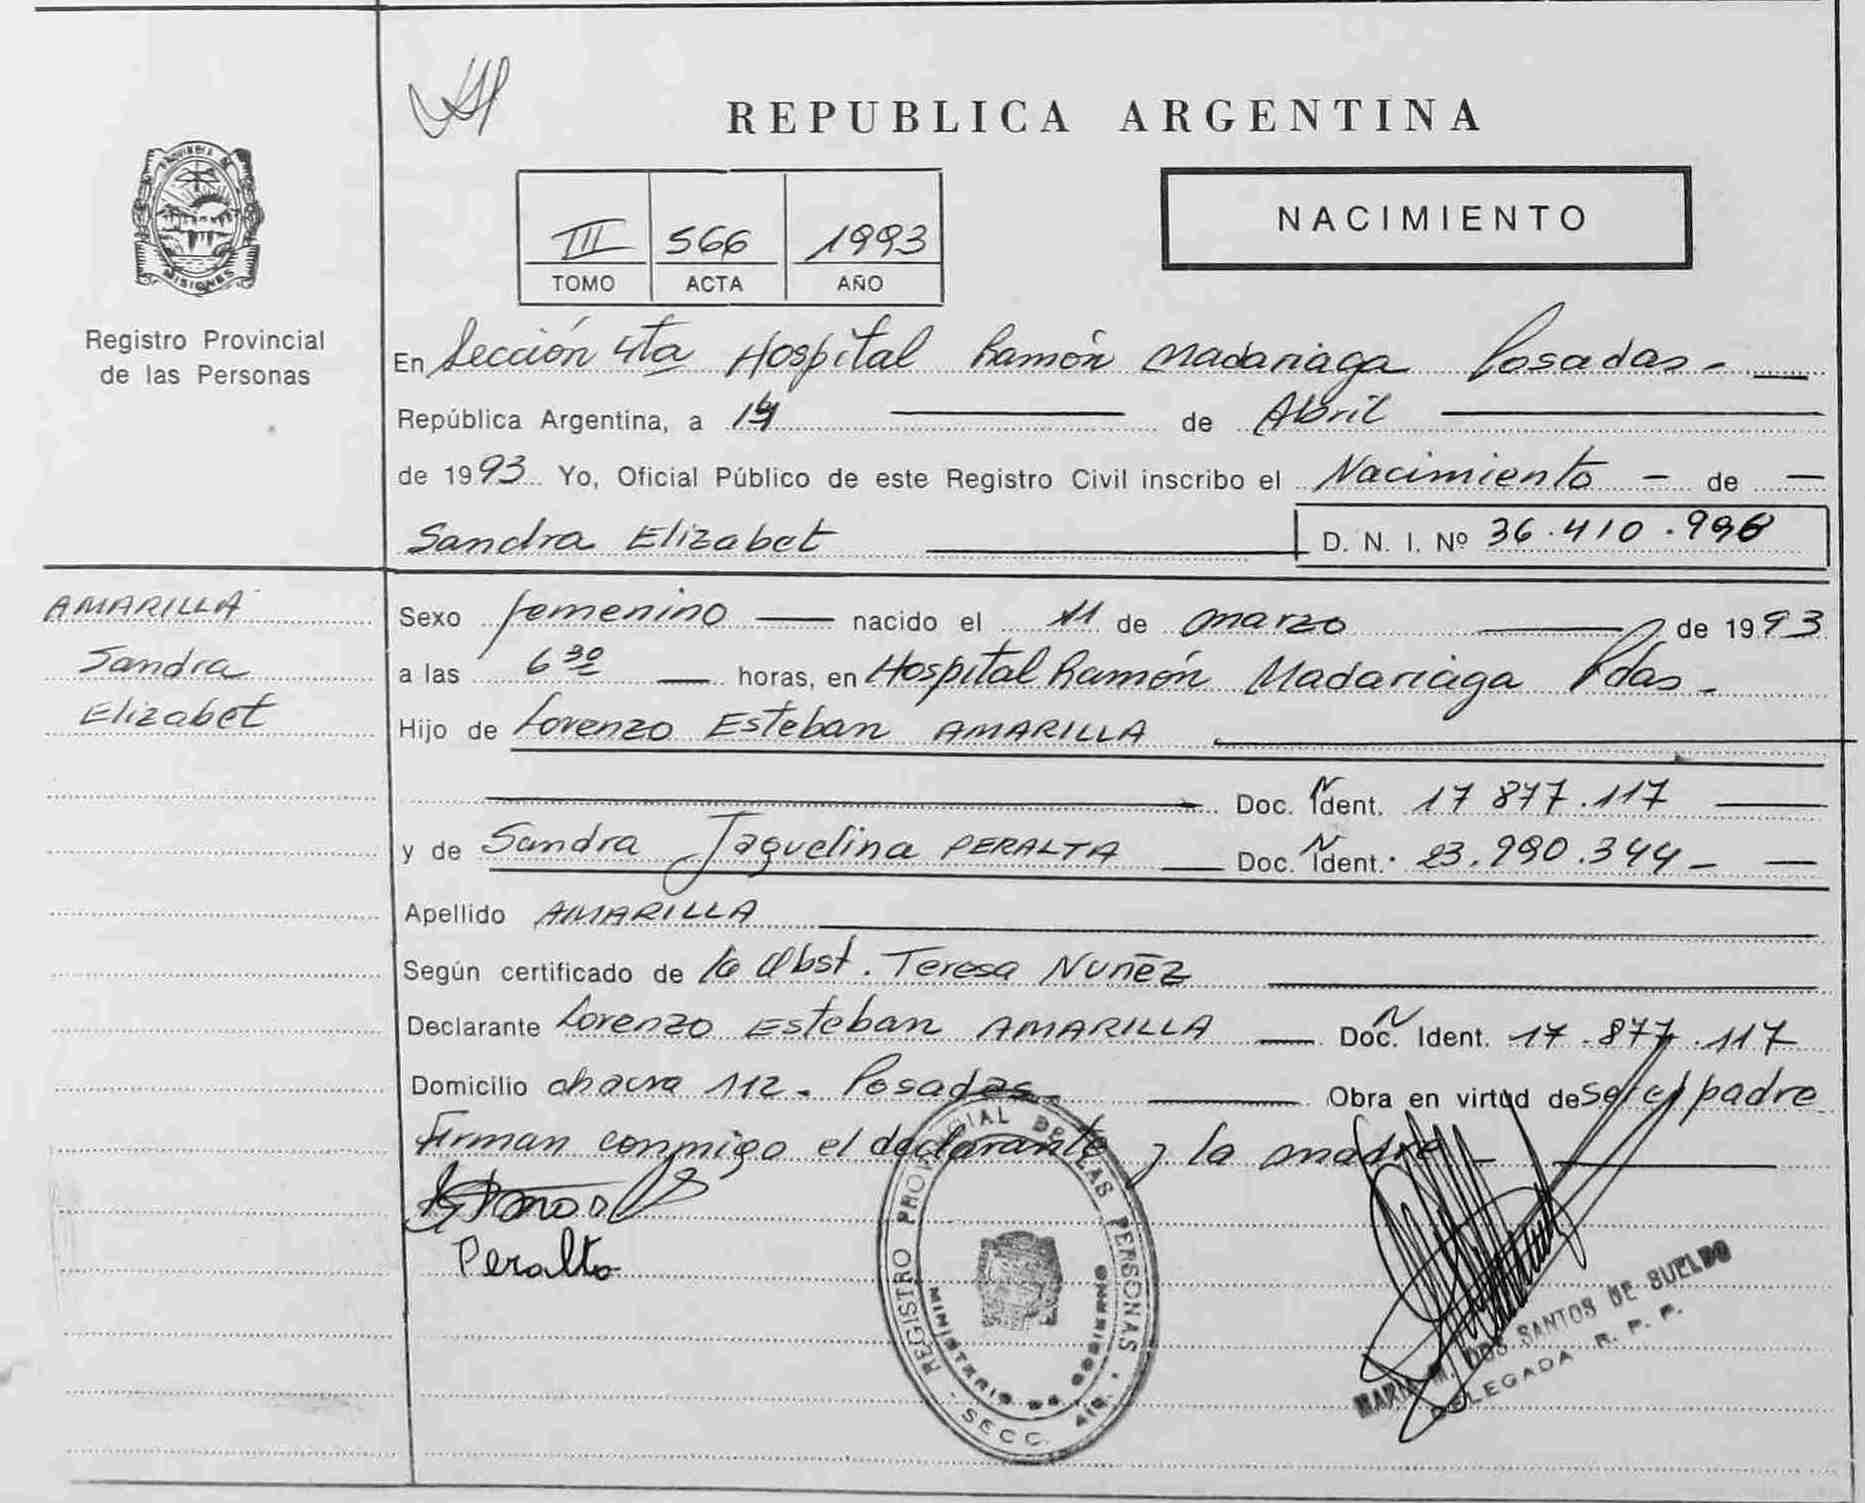 REPUBLICA ARGENTINA
PROVINCIA DE
MISIONES
Registro Provincial
de las Personas
III 566 1993
TOMO ACTA AÑO
NACIMIENTO
En Sección 4ta Hospital Ramón Madariaga Posadas -
República Argentina, a de Abril
de 1993 Yo, Oficial Público de este Registro Civil inscribo el Nacimiento - de
Sandra Elizabet D. N. I. Nº 36.410.996
AMARILLA
Sandra
Elizabet
Sexo femenino nacido el 11 de marzo de 1993
a las 6 30 horas, en Hospital Ramón Madariaga Pdas -
Hijo de Lorenzo Esteban AMARILLA
Doc. N Ident. 17 877.117
y de Sandra Jaquelina PERALTA Doc. N Ident. 23.990.344 -
Apellido AMARILLA
Según certificado de la Obst. Teresa Nuñez
Declarante Lorenzo Esteban AMARILLA Doc. N Ident. 17.877.117
Domicilio chacra 112 - Posadas - Obra en virtud de ser el padre
Firman conmigo el declarante y la madre -
Peralta
REGISTRO PROVINCIAL DE LAS PERSONAS
MINISTERIO DE GOBIERNO
SECC.
MARIA M. DOS SANTOS DE SUELDO
DELEGADA R. P. P.